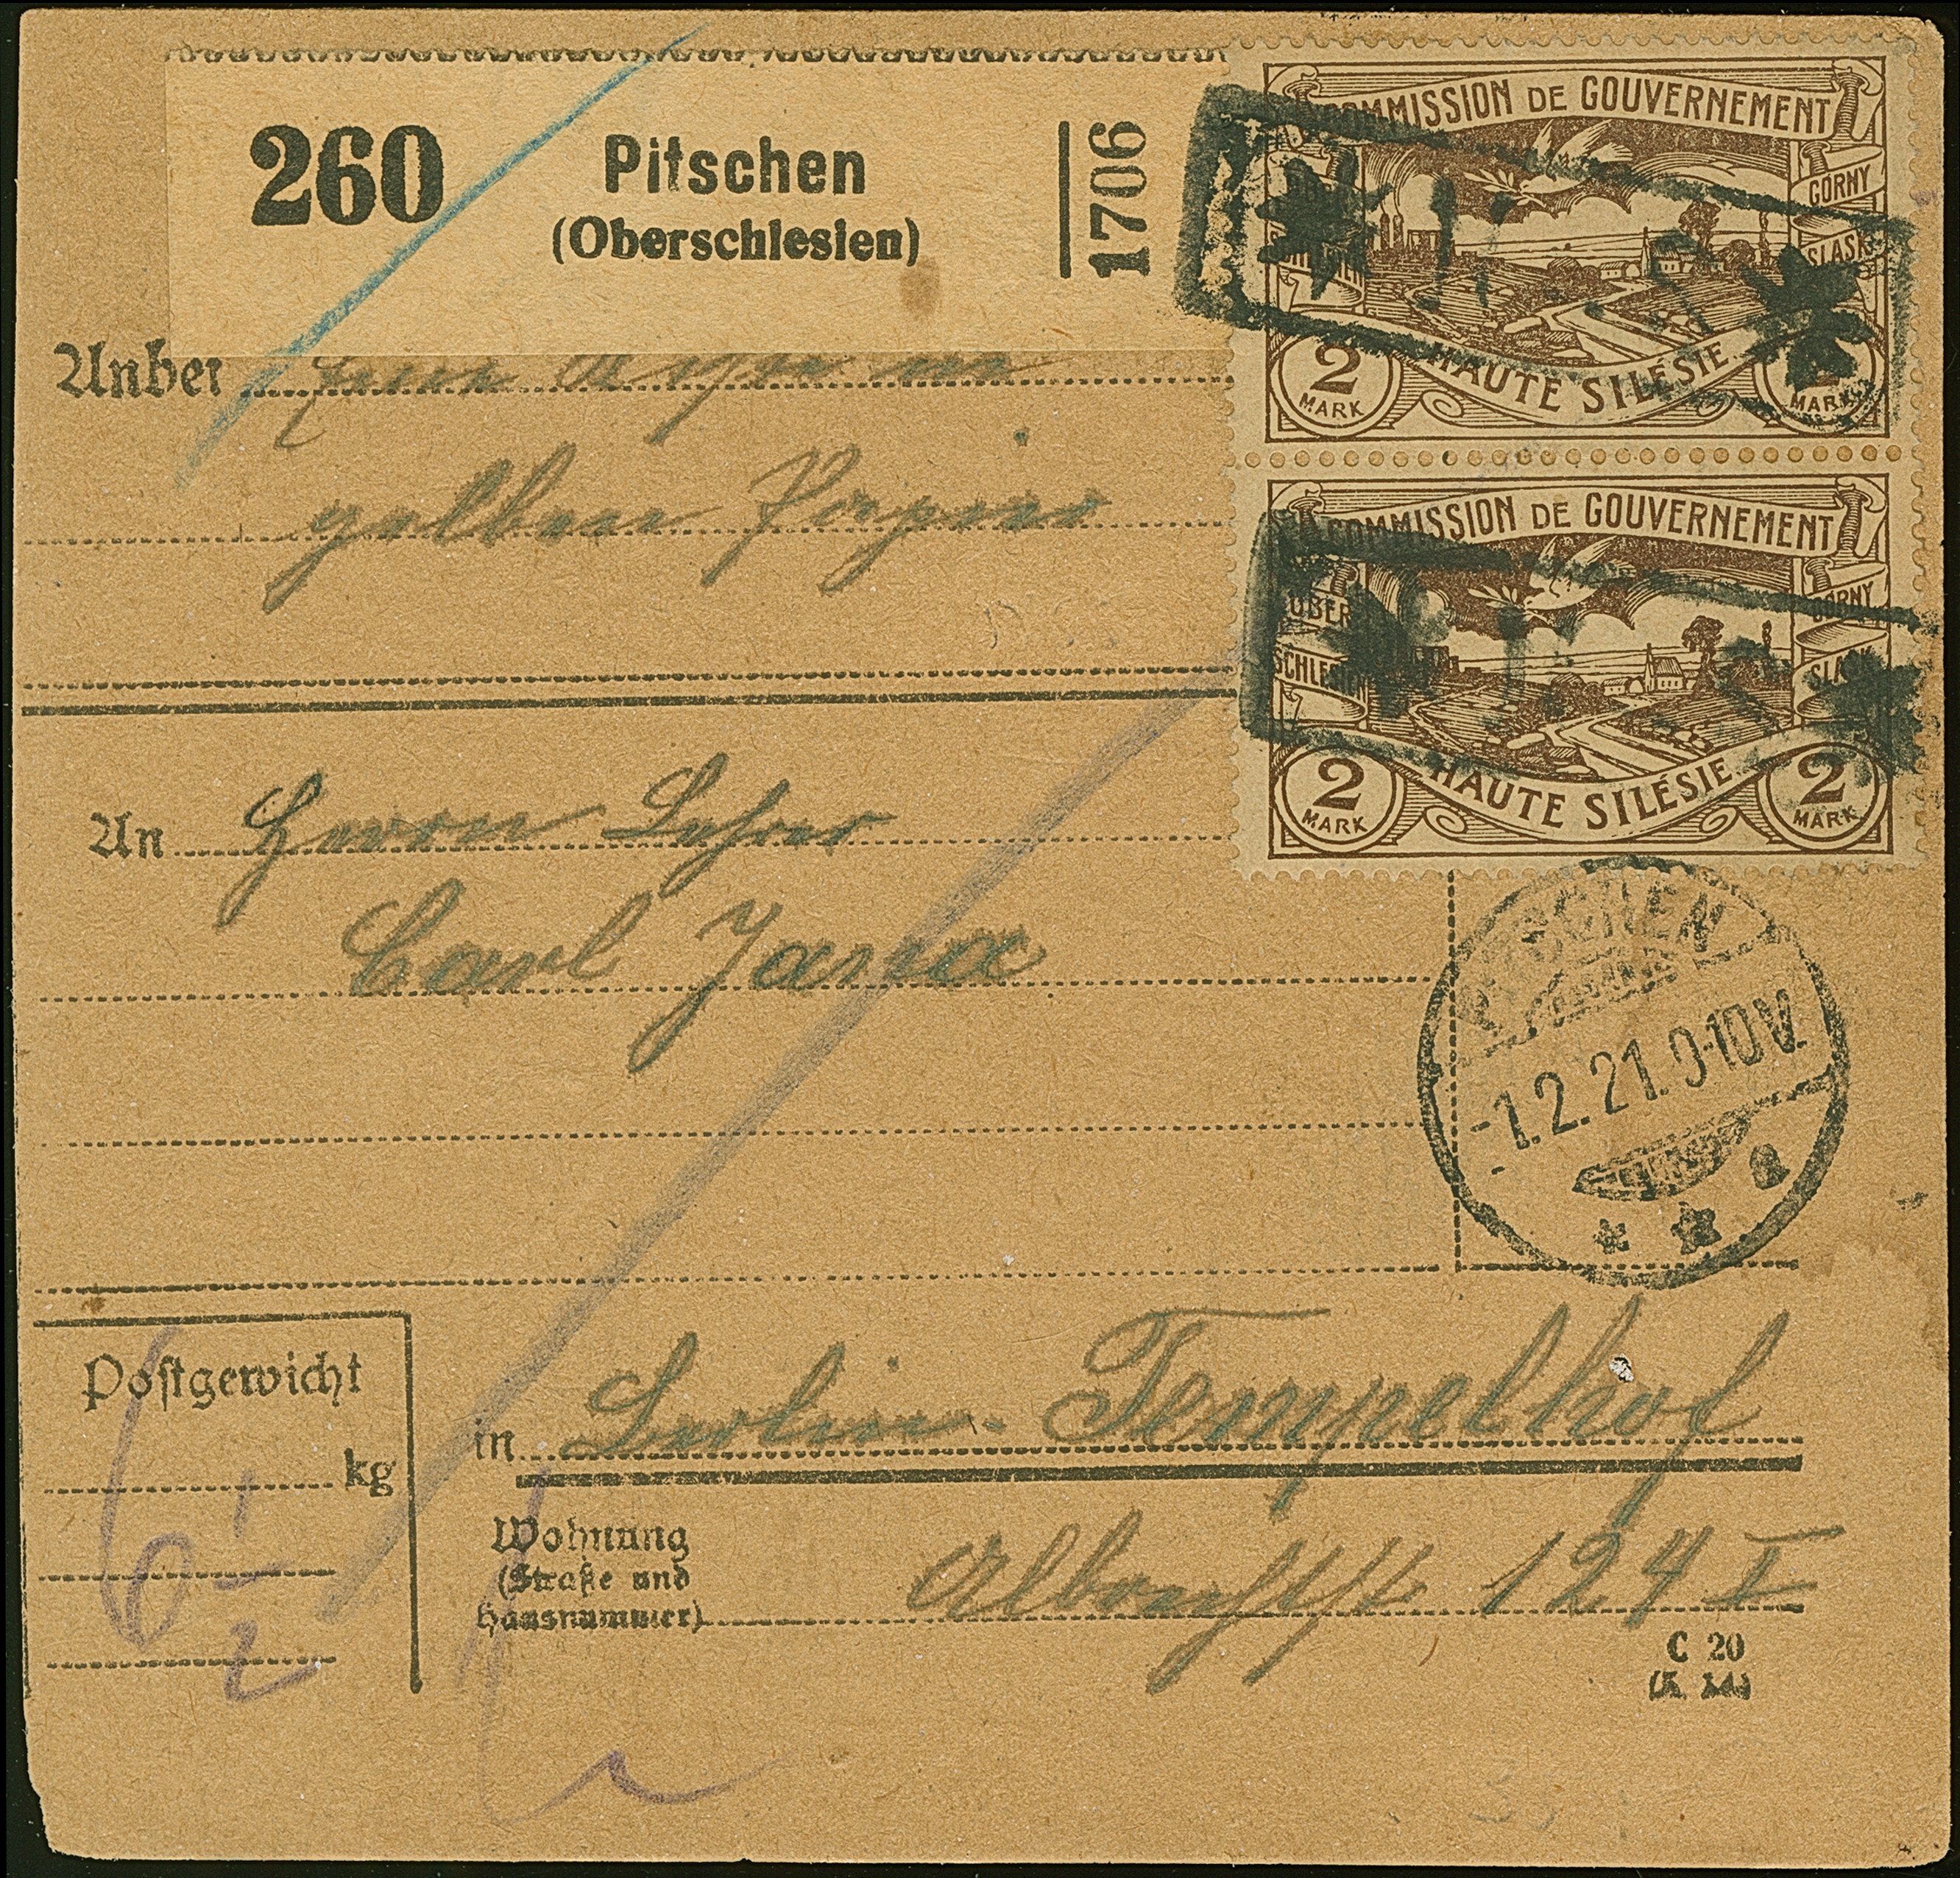 260
Pitschen
(Oberschlesien)
1706
COMMISSION DE GOUVERNEMENT
GÓRNY
ŚLĄSK
HAUTE SILÉSIE
2
MARK
MARK
COMMISSION DE GOUVERNEMENT
OBER
SCHLESIEN
GÓRNY
HAUTE SILÉSIE
2
MARK
2
MARK
Anbei
gelben Papier
An Herrn Lehrer
Carl Jana
PITSCHEN
-1.2.21.9-10V.
a
* *
Postgewicht
kg
6 1/2
in Berlin-Tempelhof
Wohnung
(Straße und
Hausnummer)
Albrechtstr 124 I
C 20